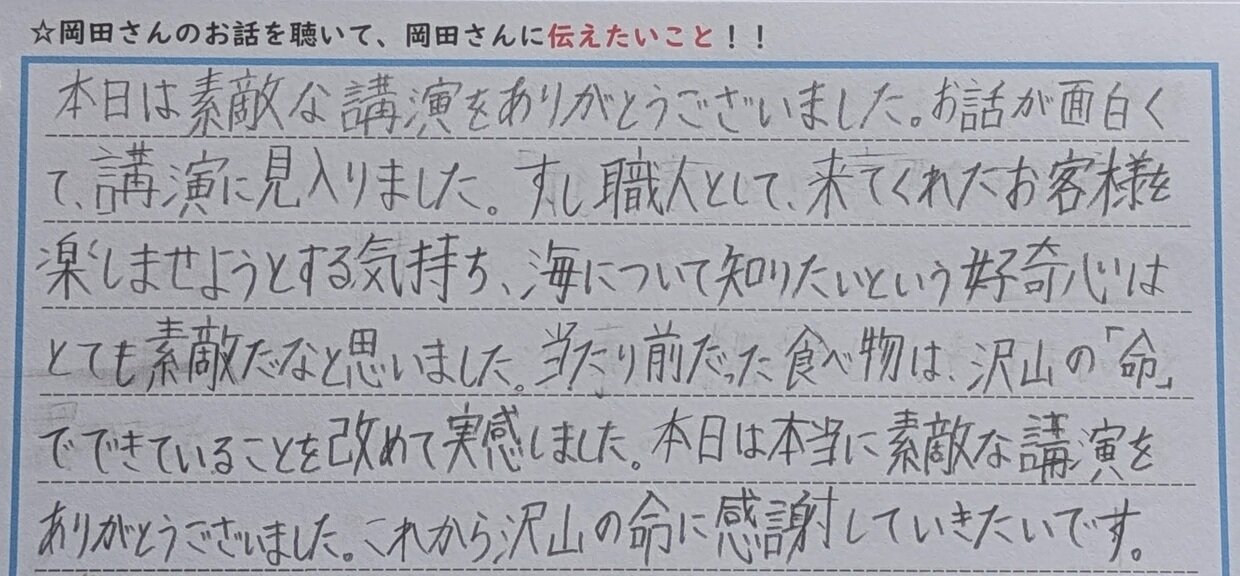 ☆岡田さんのお話を聴いて、岡田さんに伝えたいこと！！
本日は素敵な講演をありがとうございました。お話が面白く
て、講演に見入りました。すし職人として、来てくれたお客様を
楽しませようとする気持ち、海について知りたいという好奇心は
とても素敵だなと思いました。当たり前だった食べ物は、沢山の「命」
でできていることを改めて実感しました。本日は本当に素敵な講演を
ありがとうございました。これから沢山の命に感謝していきたいです。